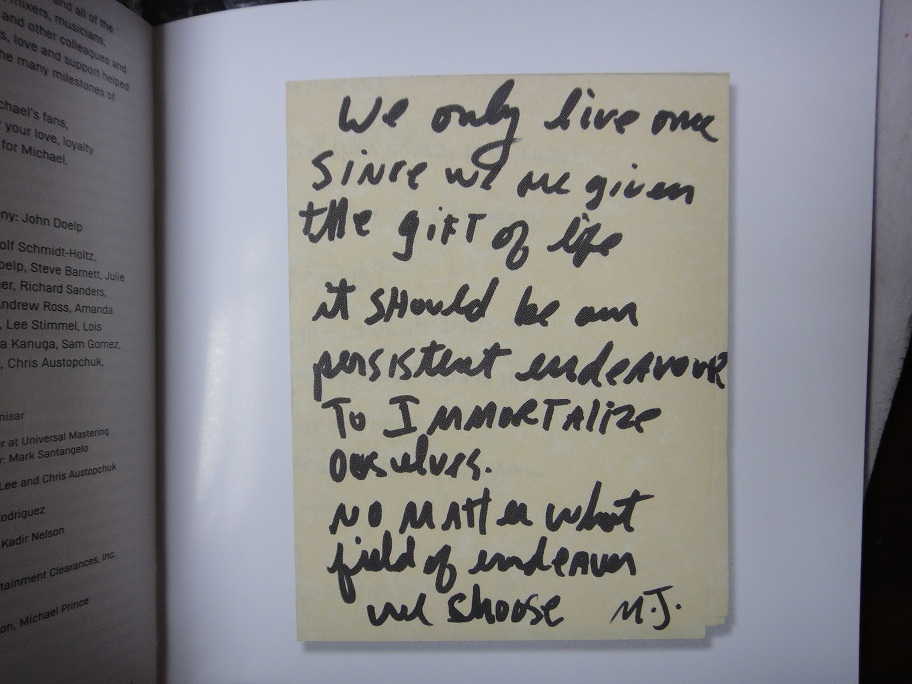 and all of the
mixers, musicians,
and other colleagues and
s, love and support helped
he many milestones of
chael's fans,
your love, loyalty
for Michael.
ny: John Doelp
olf Schmidt-Holtz,
oelp, Steve Barnett, Julie
er, Richard Sanders,
ndrew Ross, Amanda
, Lee Stimmel, Lois
a Kanuga, Sam Gomez,
, Chris Austopchuk,
nisar
r at Universal Mastering
y: Mark Santangelo
Lee and Chris Austopchuk
odriguez
Kadir Nelson
tainment Clearances, Inc.
on, Michael Prince
We only live once
Since we are given
the gift of life
it should be our
persistent endeavour
To Immortalize
ourselves.
No matter what
field of endeavor
we shoose M.J.